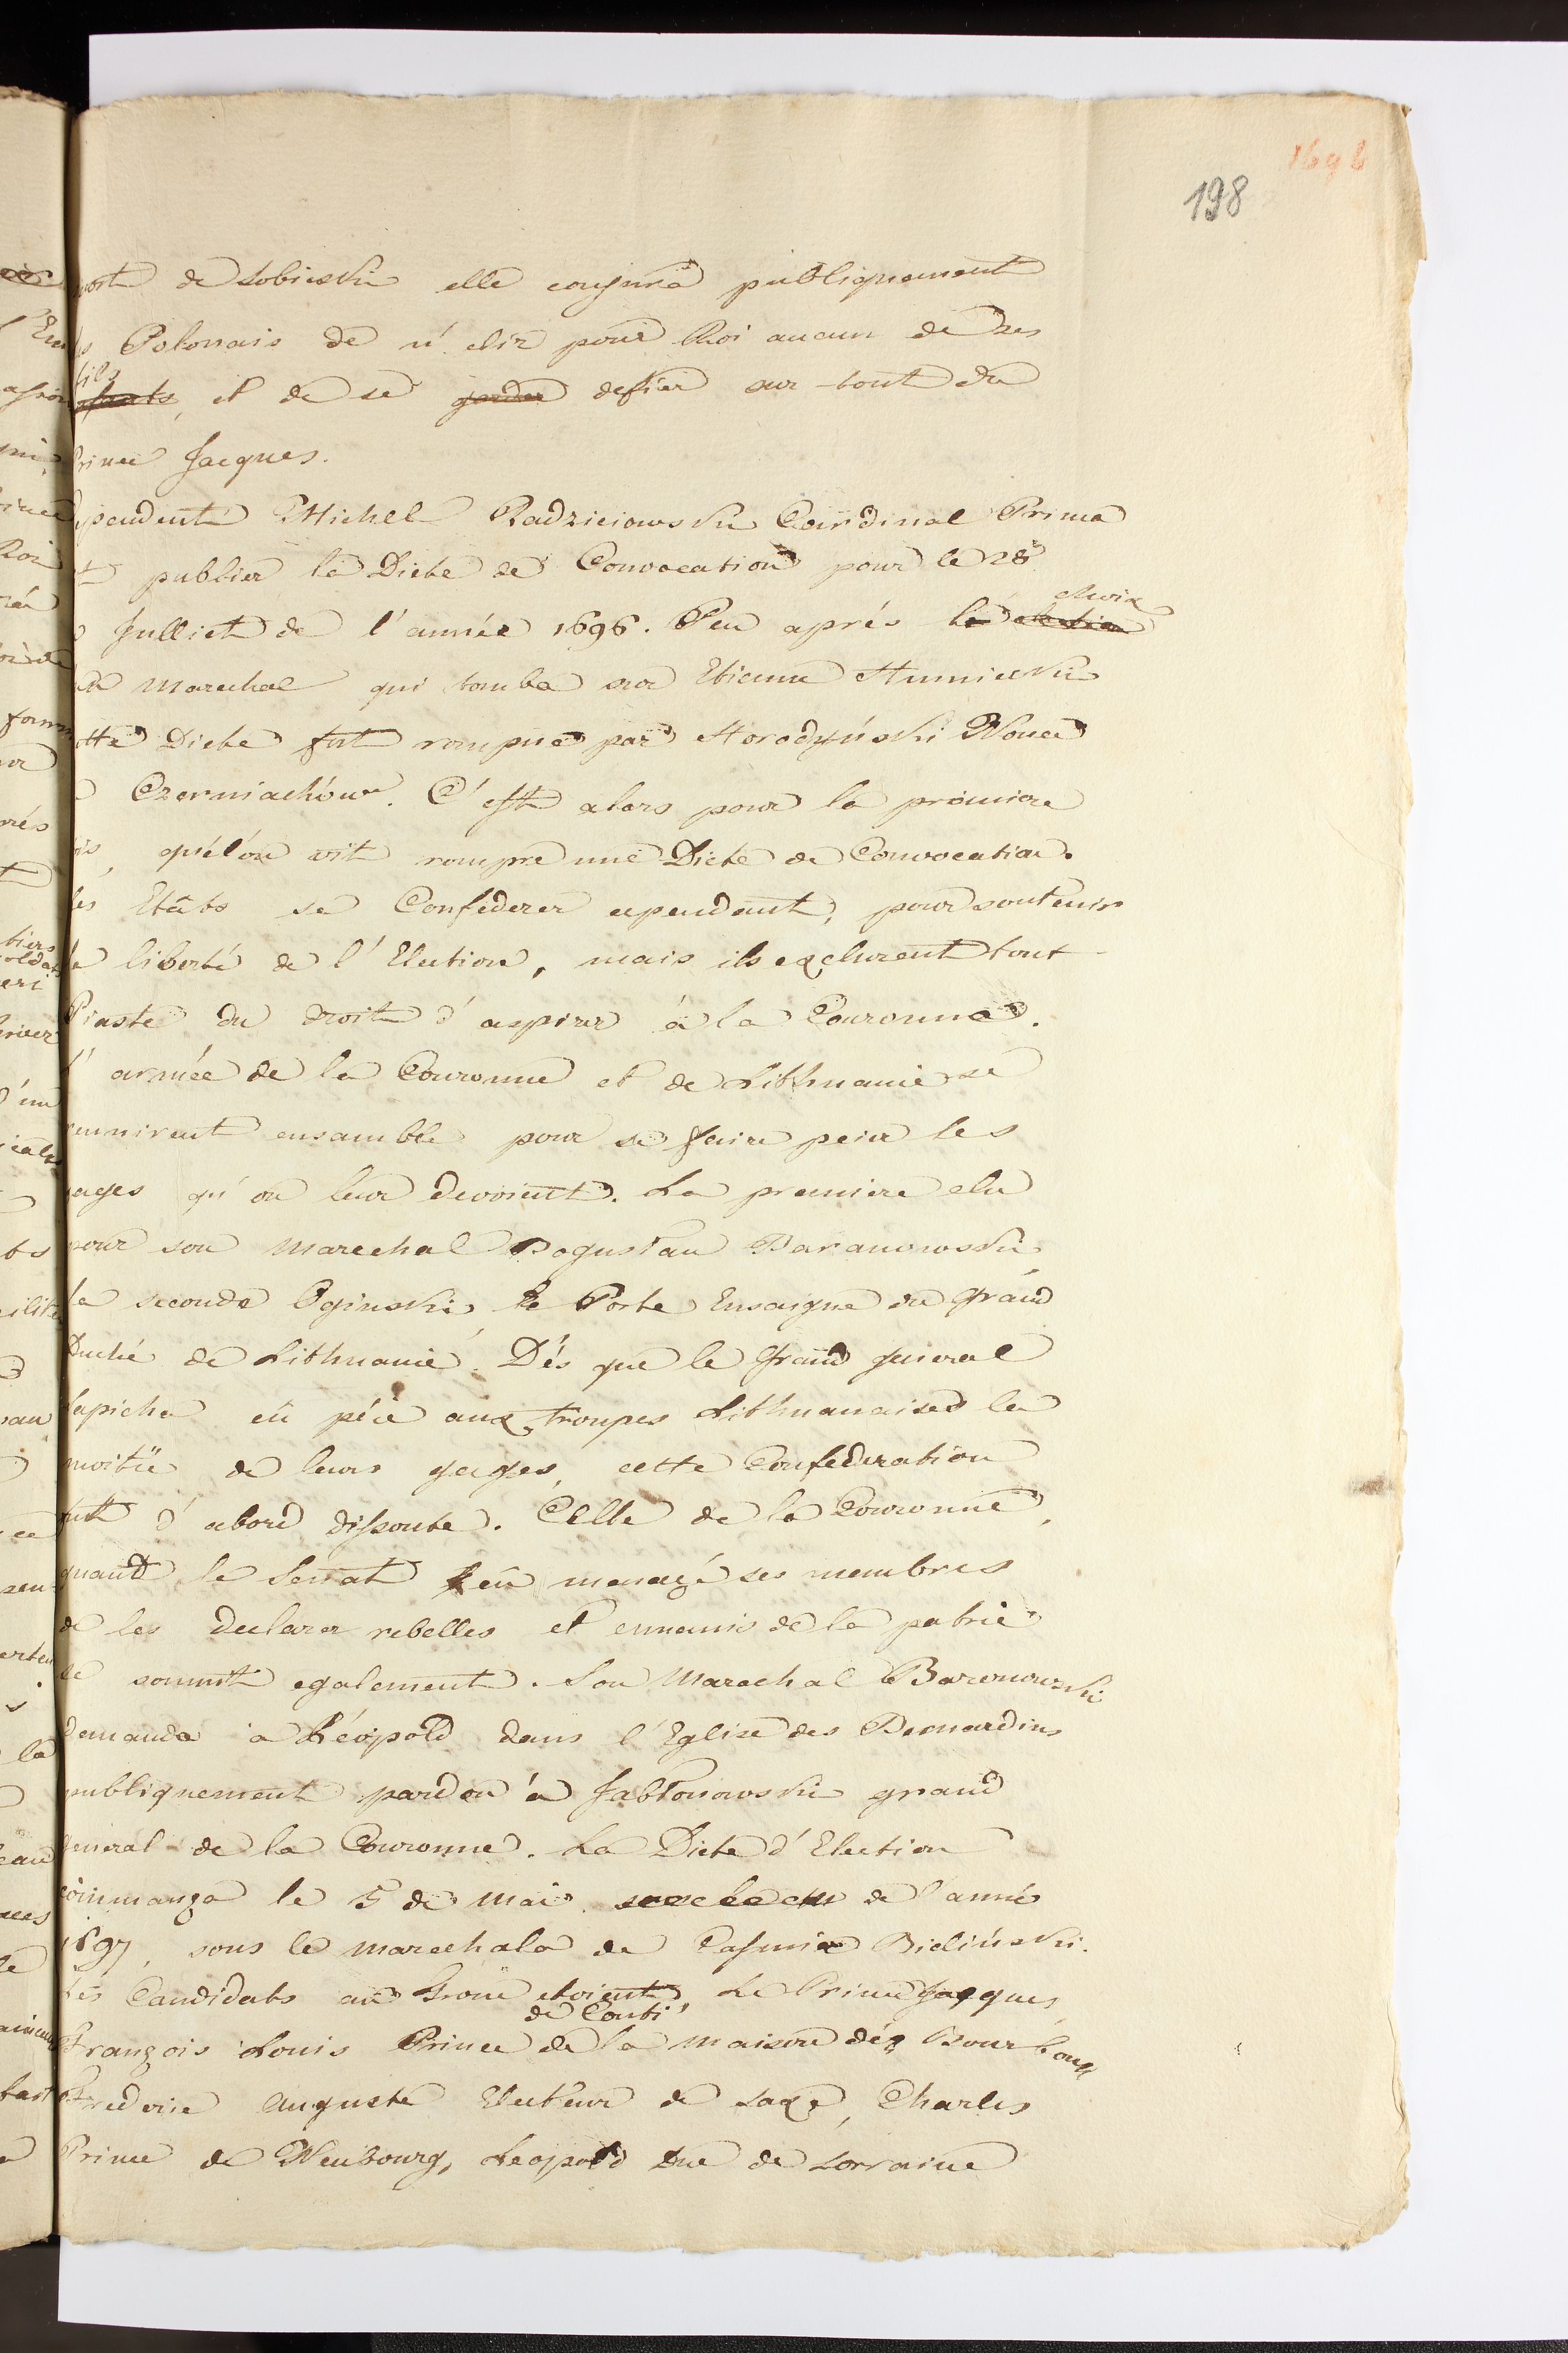 1696
198
mort de Sobieski elle conjura publiquement
Polonais de n' elir pour Roi aucun de ses
fils
et de se garder defier sur-tout du
Prince Jacques.
Cependent Michel Radzieiowski Cardinal Prima
publier la Diete de Convocation pour le 28
Julliet de l'année 1696. Peu aprés le election choix
du Marechal qui tomba sur Etienne Humiecki
cette Diete fut rompue par Horodyński Nonce
Czerniachów. C'est alors pour la primiere
fois, qu'elón vit rompre une Diete de Convocation.
Les Etâts se Confederer cependent, pour soutenir
la liberté de l'Election, mais ils exclurent tout
Piaste du droit d'aspirer á la Couronne.
L'armée de la Couronne et de Lithuanie se
reunnirent ensamble pour se faire peier les
gages qu'on leur devoient. La premiere elu
pour son Marechal Bogusłau Baranowski,
la seconde Oginski, le Porte Ensaigne du Grand
Duché de Lithuanie. Dés que le Grand General
Sapieha eû péié aux troupes Lithuanaises la
moitïe de leurs gages, cette Confederation
fut d'abord dissoute. Celle de la Couronne,
quand le Senat eû menagé ses membres
de les declarer rebelles et ennamis de la patrie
se soumit egalement. Son Marechal Baronowski
demanda à Léopold dans l'Eglise des Bernardins
publiquement pardon á Jabłonowski grand
General de la Couronne. La Diete d'Election
commança le 5 de Mai de l'anné
1697, sous le marechala de Casmir Bieliński.
Les Candidats au Trone etoient, Le Prince Jacques,
de Conti
François Louis Prince de la maison dés Bourbons
Frederic Auguste Electeur de Saxe, Charles
Prince de Neubourg, Leopold Duc de Lorraine